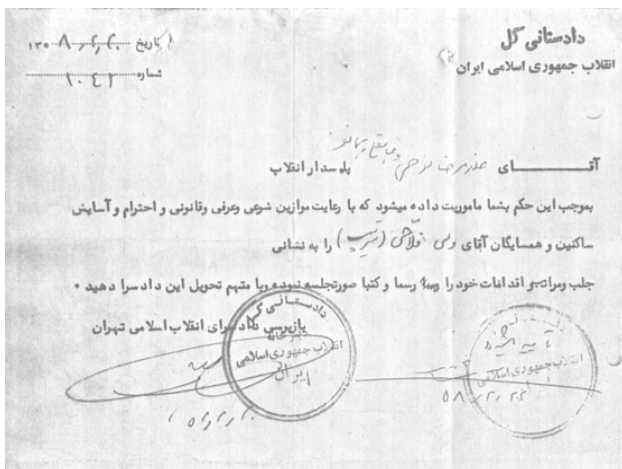 دادستانی کل
انقلاب جمهوری اسلامی ایران
تاریخ
شماره ۱۰۴۲
آقـــــــای علیرضا پاسدار انقلاب
بموجب این حکم بشما ماموریت داده میشود که با رعایت موازین شرعی وعرفی وقانونی و احترام و آسایش
ساکنین و همسایگان آقای ولی را به نشانی
جلب ومراتب و اقدامات خود را رسما و کتبا صورتجلسه نموده وبا متهم تحویل این دادسرا دهید •
بازپرسی دادسرای انقلاب اسلامی تهران
دادستانی کل
انقلاب جمهوری اسلامی
ایران
انقلاب جمهوری اسلامی